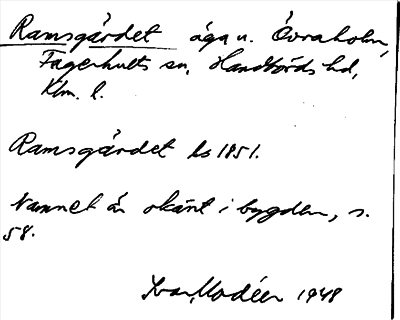 Ramsgärdet äga u. Övraholm,
Fagerhults sn, Handbörds hd,
Klm. l.
Ramsgärdet ls 1851.
Namnet är okänt i bygden, s.
58.
Ivar Modéer 1948